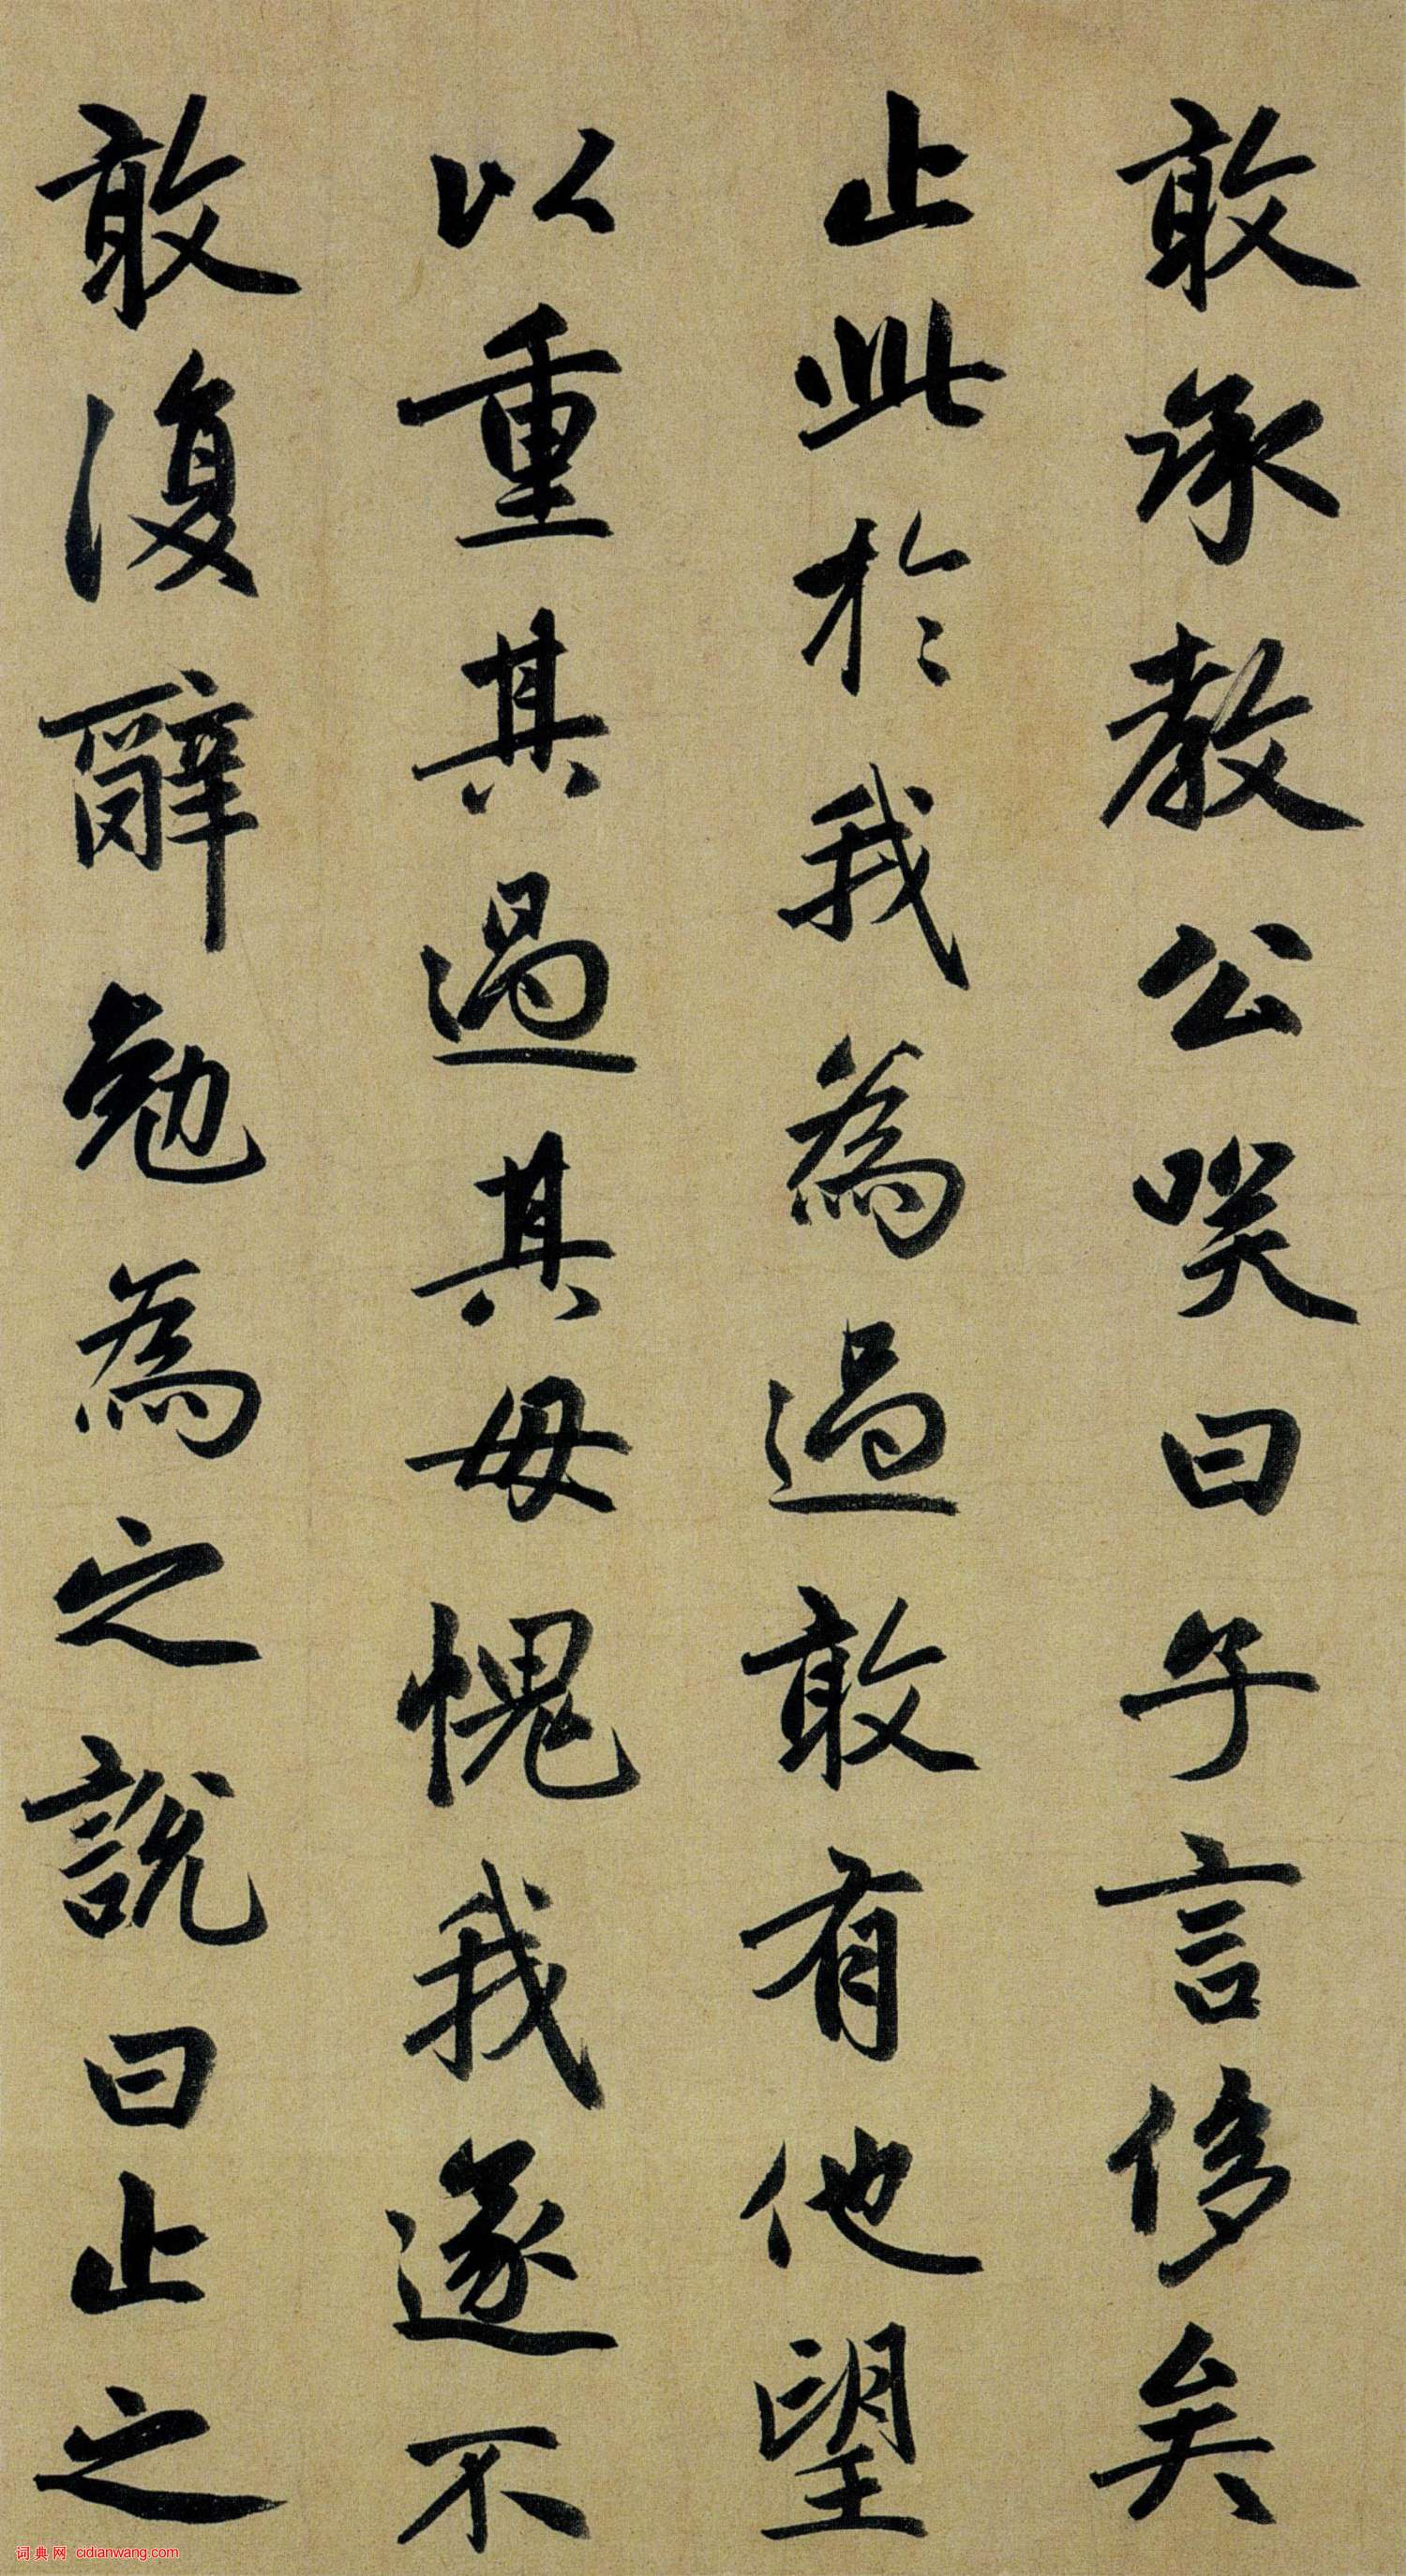 敢承教公笑曰子言侈矣
止此於我為過敢有他望
以重其過其毋愧我遂不
敢復辭勉為之說曰止之
词典网 cidianwang.com